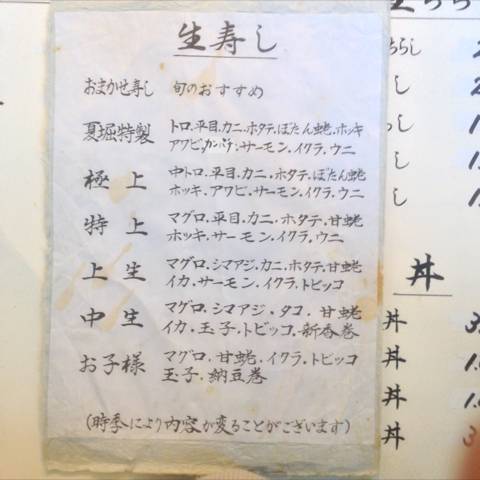 生寿し
おまかせ寿し 旬のおすすめ
夏堀特製 トロ.平目.カニ.ホタテ.ぼたん蛯.ホッキ
アワビ.カンパチ.サーモン.イクラ.ウニ
極上 中トロ.平目.カニ.ホタテ.ぼたん蛯
ホッキ.アワビ.サーモン.イクラ.ウニ
特上 マグロ.平目.カニ.ホタテ.甘蛯
ホッキ.サーモン.イクラ.ウニ
上生 マグロ.シマアジ.カニ.ホタテ.甘蛯
イカ.サーモン.イクラ.トビッコ
中生 マグロ.シマアジ.タコ.甘蛯
イカ.玉子.トビッコ.新香巻
お子様 マグロ.甘蛯.イクラ.トビッコ
玉子.納豆巻
(時季により内容が変ることがございます)
ちらし
し
し
し
し
丼
丼
丼
丼
丼